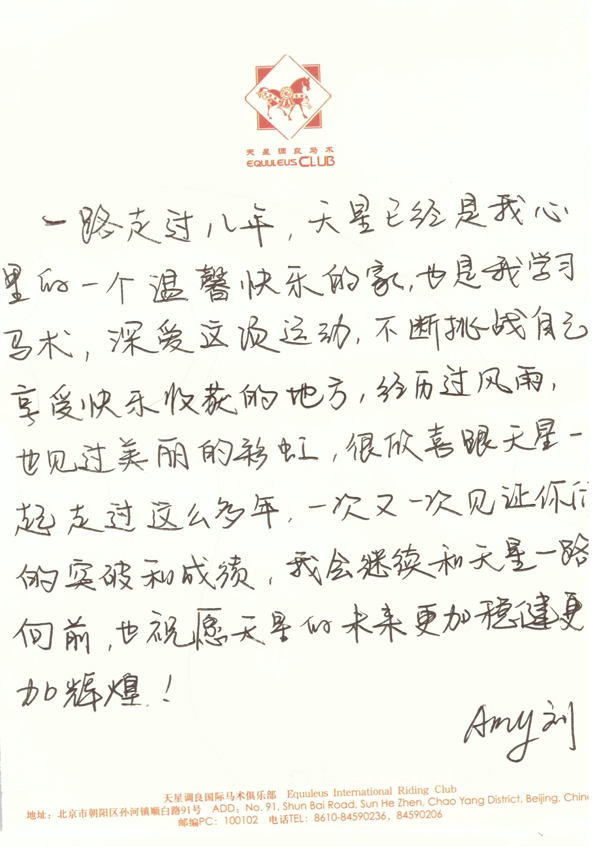 天星调良马术
EQUULEUS CLUB
一路走过八年，天星已经是我心
里的一个温馨快乐的家，也是我学习
马术，深爱这项运动，不断挑战自己
享受快乐收获的地方，经历过风雨，
也见过美丽的彩虹，很欣喜跟天星一
起走过这么多年，一次又一次见证你们
的突破和成绩，我会继续和天星一路
向前，也祝愿天星的未来更加稳健更
加辉煌！
Amy 刘
天星调良国际马术俱乐部 Equuleus International Riding Club
地址：北京市朝阳区孙河镇顺白路91号 ADD: No. 91, Shun Bai Road, Sun He Zhen, Chao Yang District, Beijing, China
邮编PC: 100102 电话TEL: 8610-84590236, 84590206